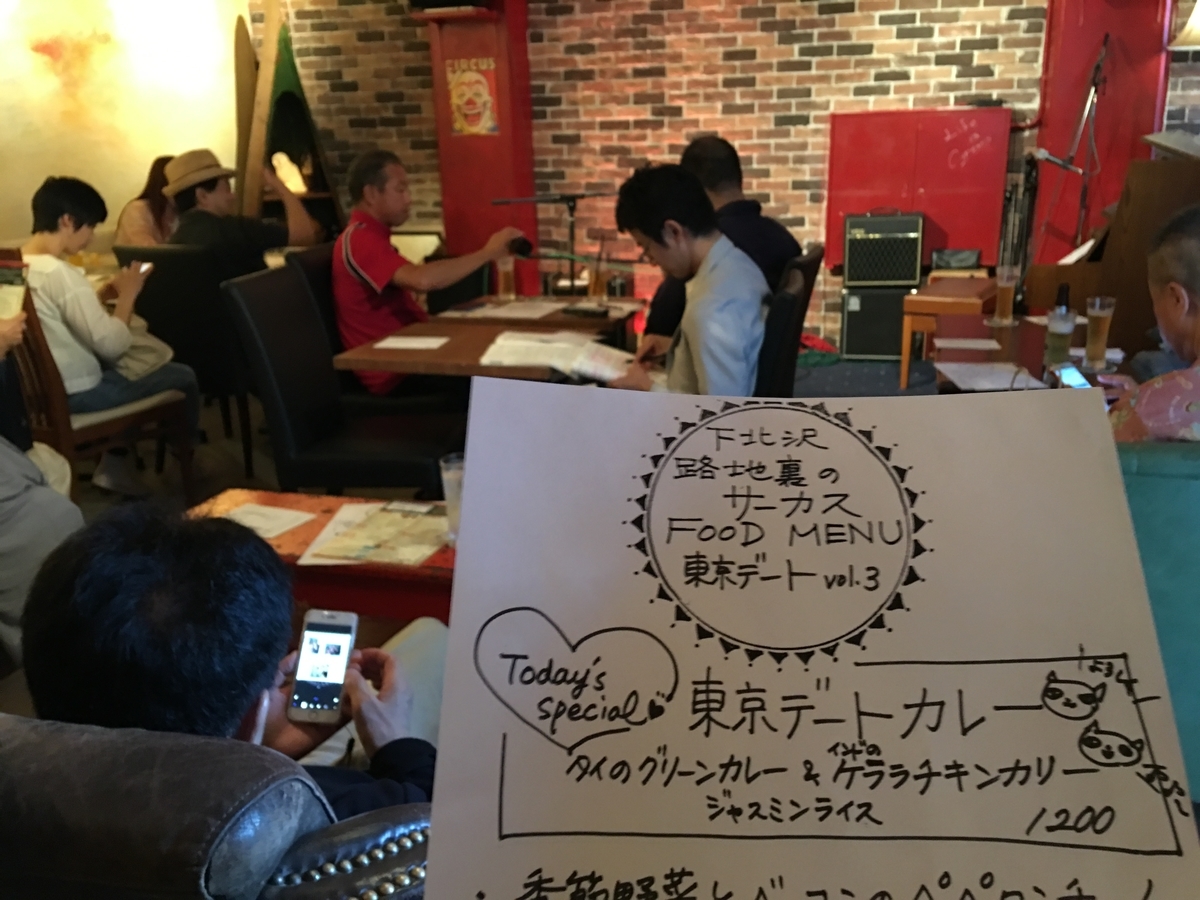 CIRCUS
下北沢
路地裏の
サーカス
FOOD MENU
東京デート vol.3
Today's
special
東京デートカレー
タイのグリーンカレー & インドのケララチキンカリー
ジャスミンライス
1200
・季節野菜とベーコンのペペロンチーノ